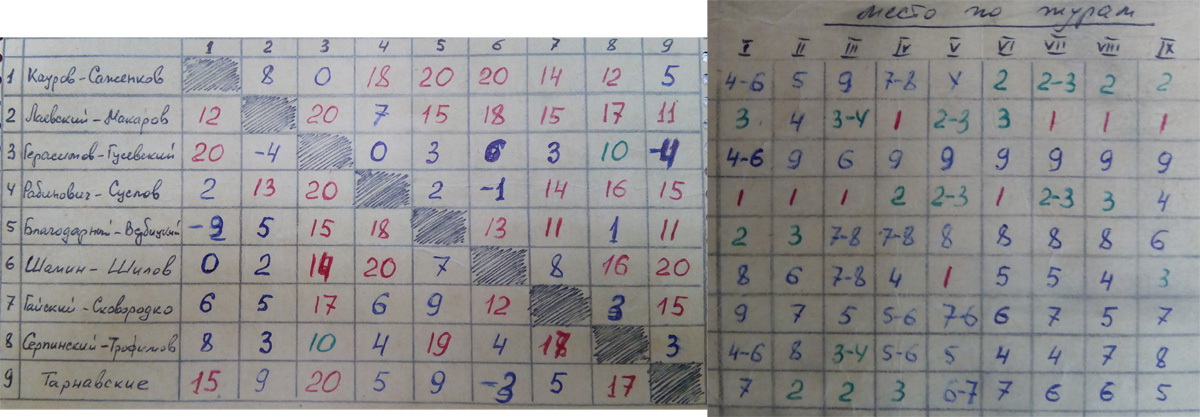 место по турам
1 2 3 4 5 6 7 8 9
I II III IV V VI VII VIII IX
1 Кауров-Саженков 8 0 18 20 20 14 12 5 4-6 5 9 7-8 4 2 2-3 2 2
2 Лаевский-Макаров 12 20 7 15 18 15 17 11 3 4 3-4 1 2-3 3 1 1 1
3 Герасимов-Гусевский 20 -4 0 3 6 3 10 -4 4-6 9 6 9 9 9 9 9 9
4 Рабинович-Суслов 2 13 20 2 -1 14 16 15 1 1 1 2 2-3 1 2-3 3 4
5 Благодарный-Вербицкий -2 5 15 18 13 11 1 11 2 3 7-8 7-8 8 8 8 8 6
6 Шамин-Шилов 0 2 14 20 7 8 16 20 8 6 7-8 4 1 5 5 4 3
7 Гайский-Сковородко 6 5 17 6 9 12 3 15 9 7 5 5-6 7-6 6 7 5 7
8 Серпинский-Трофимов 8 3 10 4 19 4 17 3 4-6 8 3-4 5-6 5 4 4 7 8
9 Тарнавские 15 9 20 5 9 -3 5 17 7 2 2 3 6-7 7 6 6 5